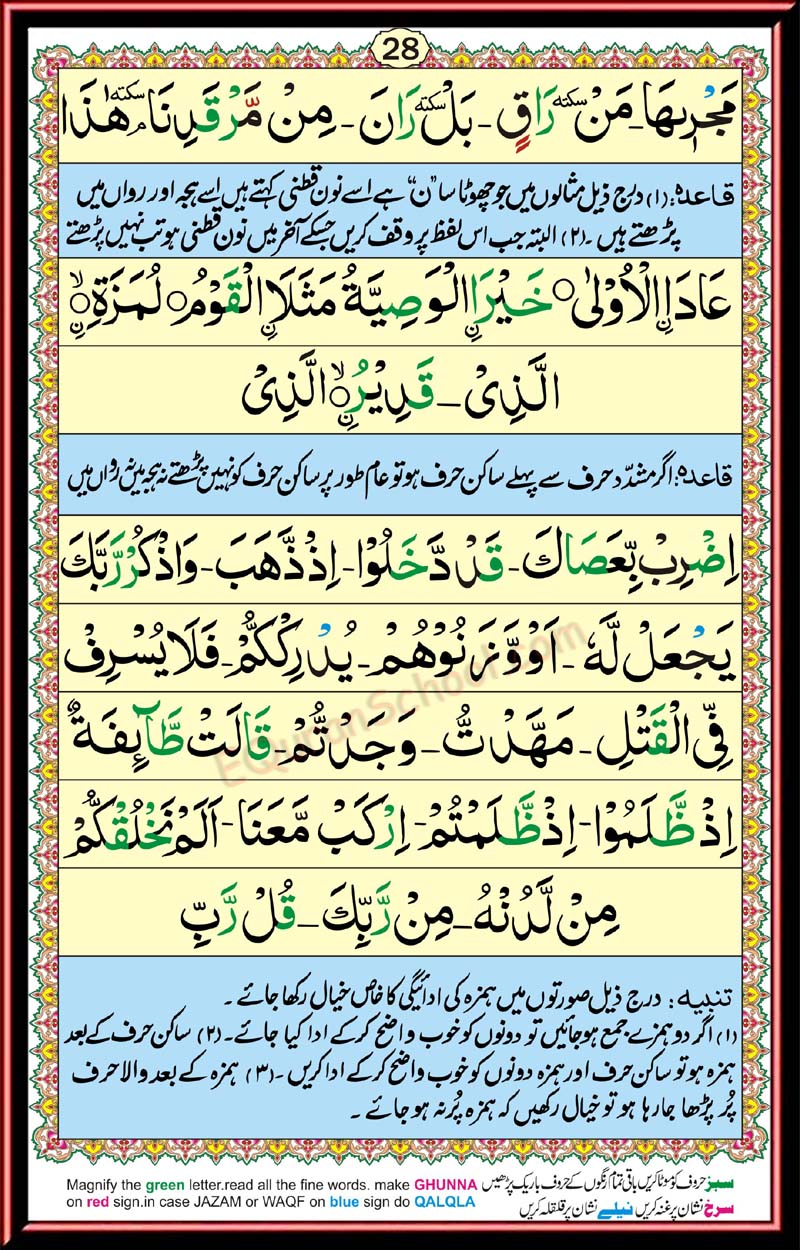 28
مَجْرٖىهَا۔ مَنْ سكته رَاقٍ۔ بَلْ سكته رَانَ۔ مِنْ مَّرْقَدِنَا سكته هٰذَا
قاعدہ: (۱) درج ذیل مثالوں میں جو چھوٹا سا "ن" ہے اسے نون قطنی کہتے ہیں اسے ہجہ اور رواں میں
پڑھتے ہیں ۔ (۲) البتہ جب اس لفظ پر وقف کریں جسکے آخر میں نون قطنی ہو تب نہیں پڑھتے
عَادَاۨ الْاُوْلٰى۝ خَيْرَاۨ الْوَصِيَّةُ مَثَلَاۨ الْقَوْمُ۝ لُمَزَةِۨ۝ۙ
الَّذِىْ۔ قَدِيْرُۨ۝ۙ الَّذِىْ
قاعدہ: اگر مشدّد حرف سے پہلے ساکن حرف ہو تو عام طور پر ساکن حرف کو نہیں پڑھتے نہ ہجہ میں نہ رواں میں
اِضْرِبْ بِّعَصَاكَ۔ قَدْ دَّخَلُوْا۔ اِذْ ذَّهَبَ۔ وَاذْكُرْ رَّبَّكَ
يَجْعَلْ لَّهٗ۔ اَوْ وَّزَنُوْهُمْ۔ يُدْرِكْكُّمْ۔ فَلَا يُسْرِفْ
فِّى الْقَتْلِ۔ مَهَّدْتُّ۔ وَجَدْتُّمْ۔ قَالَتْ طَّآئِفَةٌ
اِذْ ظَّلَمُوْا۔ اِذْ ظَّلَمْتُمْ۔ اِرْكَبْ مَّعَنَا۔ اَلَمْ نَخْلُقْكُّمْ
مِنْ لَّدُنْهُ۔ مِنْ رَّبِّكَ۔ قُلْ رَّبِّ
تنبیہ: درج ذیل صورتوں میں ہمزہ کی ادائیگی کا خاص خیال رکھا جائے ۔
(۱) اگر دو ہمزے جمع ہو جائیں تو دونوں کو خوب واضح کر کے ادا کیا جائے۔ (۲) ساکن حرف کے بعد
ہمزہ ہو تو ساکن حرف اور ہمزہ دونوں کو خوب واضح کر کے ادا کریں ۔ (۳) ہمزہ کے بعد والا حرف
پُر پڑھا جا رہا ہو تو خیال رکھیں کہ ہمزہ پُر نہ ہو جائے ۔
EQuranSchool.com
Magnify the green letter.read all the fine words. make GHUNNA
on red sign.in case JAZAM or WAQF on blue sign do QALQLA
سبز حروف کو موٹا کریں باقی تمام رنگوں کے حروف باریک پڑھیں
سرخ نشان پر غنہ کریں نیلے نشان پر قلقلہ کریں